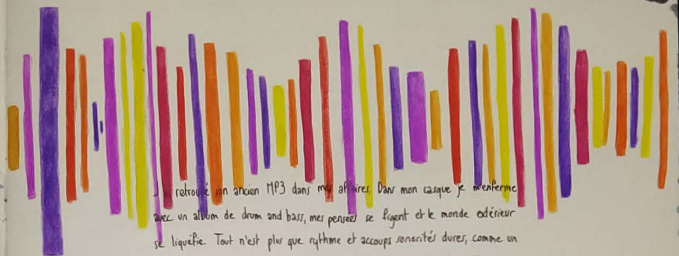 J'ai retrouvé son ancien MP3 dans mes affaires. Dans mon casque je m'enferme
avec un album de drum and bass, mes pensées se figent et le monde extérieur
se liquéfie. Tout n'est plus que rythme et accoups sonorités dures, comme un